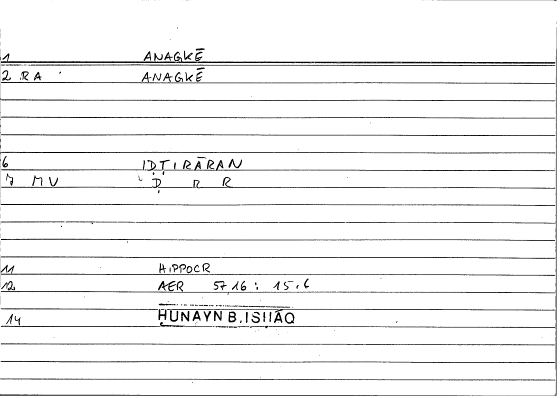 1 ANAGKĒ
2 RA ANAGKĒ
6 IḌṬIRĀRAN
7 MV Ḍ R R
11 HIPPOCR
12 AER 57,16 : 15,6
14 HUNAYN B. ISHĀQ